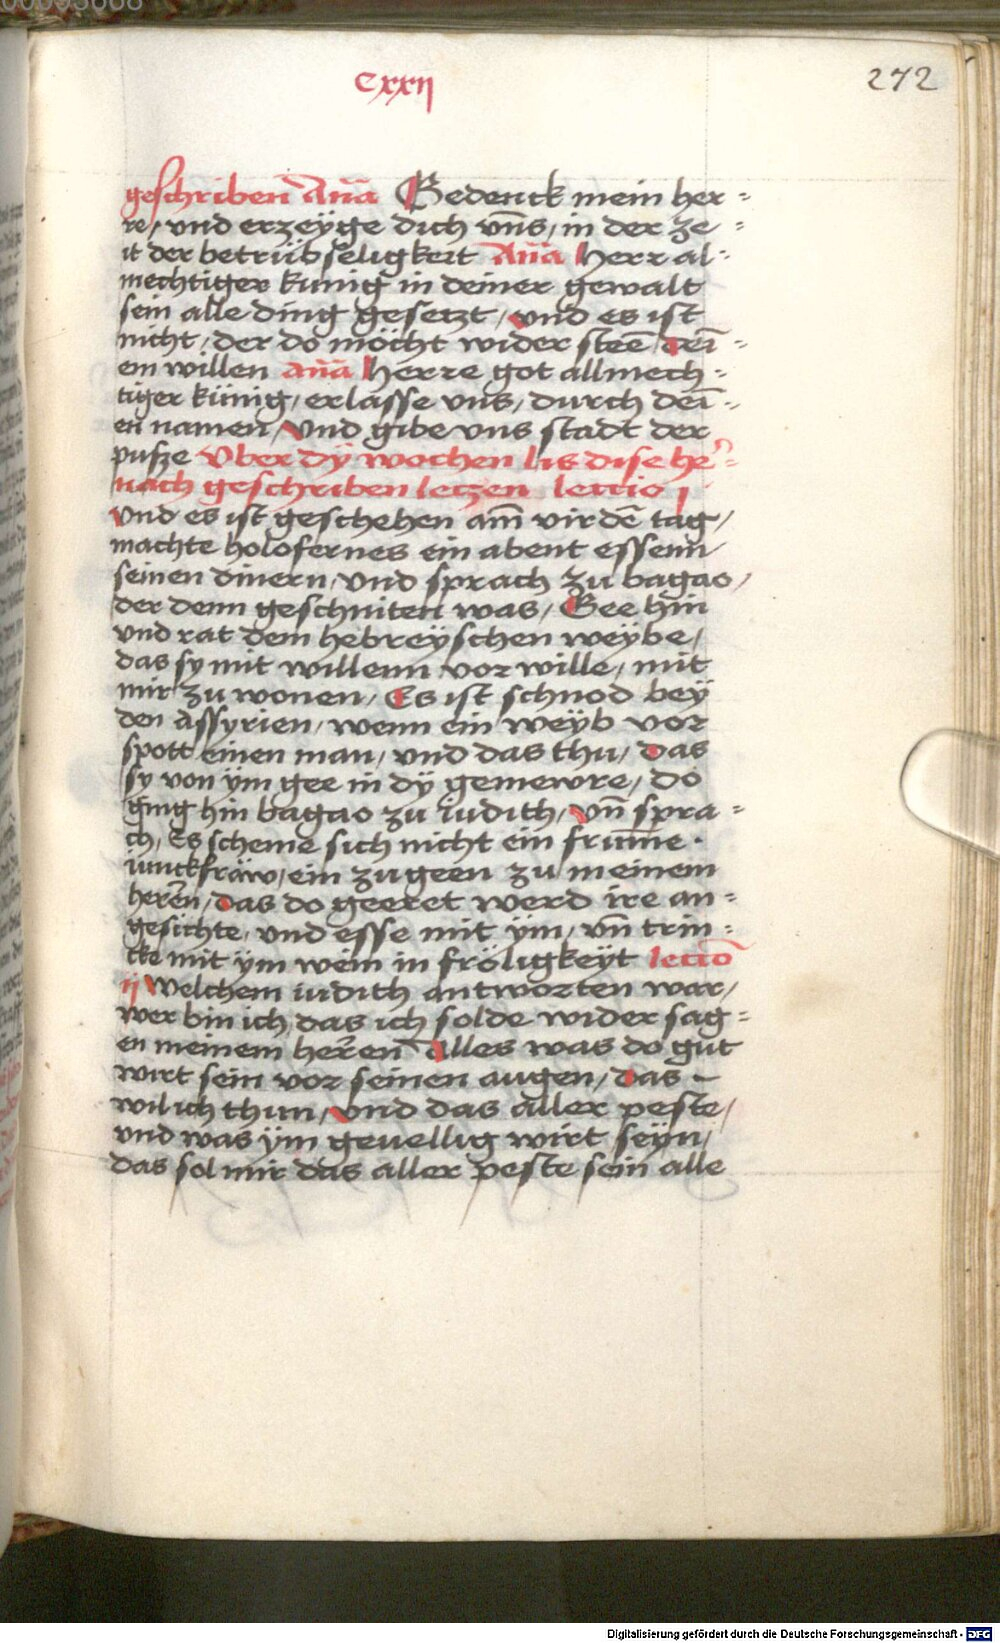 Cxxij
272
geschriben Añā Gedenck mein her=
re/ vnd erzeyge dich vn̄s/ in der ze=
it der betrübseligkeit Añā Herr al=
mechtiger kunig in deiner gewalt
sein alle ding gesetzt/ vnd es ist
nicht/ der do möcht wider steē deī=
em willen añā Herre got allmech=
tiger künig/ erlasse vns/ durch deī=
en namen/ Vnd gibe vns stadt der
pusze Vber dÿ wochen lis dise he=
nach geschriben letzen lectio j
Vnd es ist geschehen am̄ virdē tag/
machte holofernes ein abent essenn
seinen dinern/ vnd sprach zu bagao/
der denn geschniten was/ Gee hin
vnd rat dem hebreÿschen weÿbe/
das sy mit willenn vor wille/ mit
mir zu wonen/ Es ist schnod beÿ
den Assyrien/ wenn ein weÿb vor
spott einen man/ vnd das thu/ das
sy von ÿm gee in dÿ gemewre/ do
ging hin bagao zu iudith/ vn̄ spra=
ch/ Es scheme sich nicht ein frum̄e
iunckfraw/ ein zu geen zu meinem
herēn/ das do geeret werd ire an=
gesichte/ vnd esse mit ÿm/ vn̄ trin=
cke mit ÿm wein in fröligkeÿt lectiō
ij Welchem iudith antworten war/
wer bin ich das ich solde wider sag=
en meinem herēn Alles was do gut
wirt sein vor seinen augen/ das
wil ich thun/ vnd das aller peste/
vnd was ÿm geuellig wirt seÿn/
das sol mir das aller peste sein alle
Digitalisierung gefördert durch die Deutsche Forschungsgemeinschaft - DFG